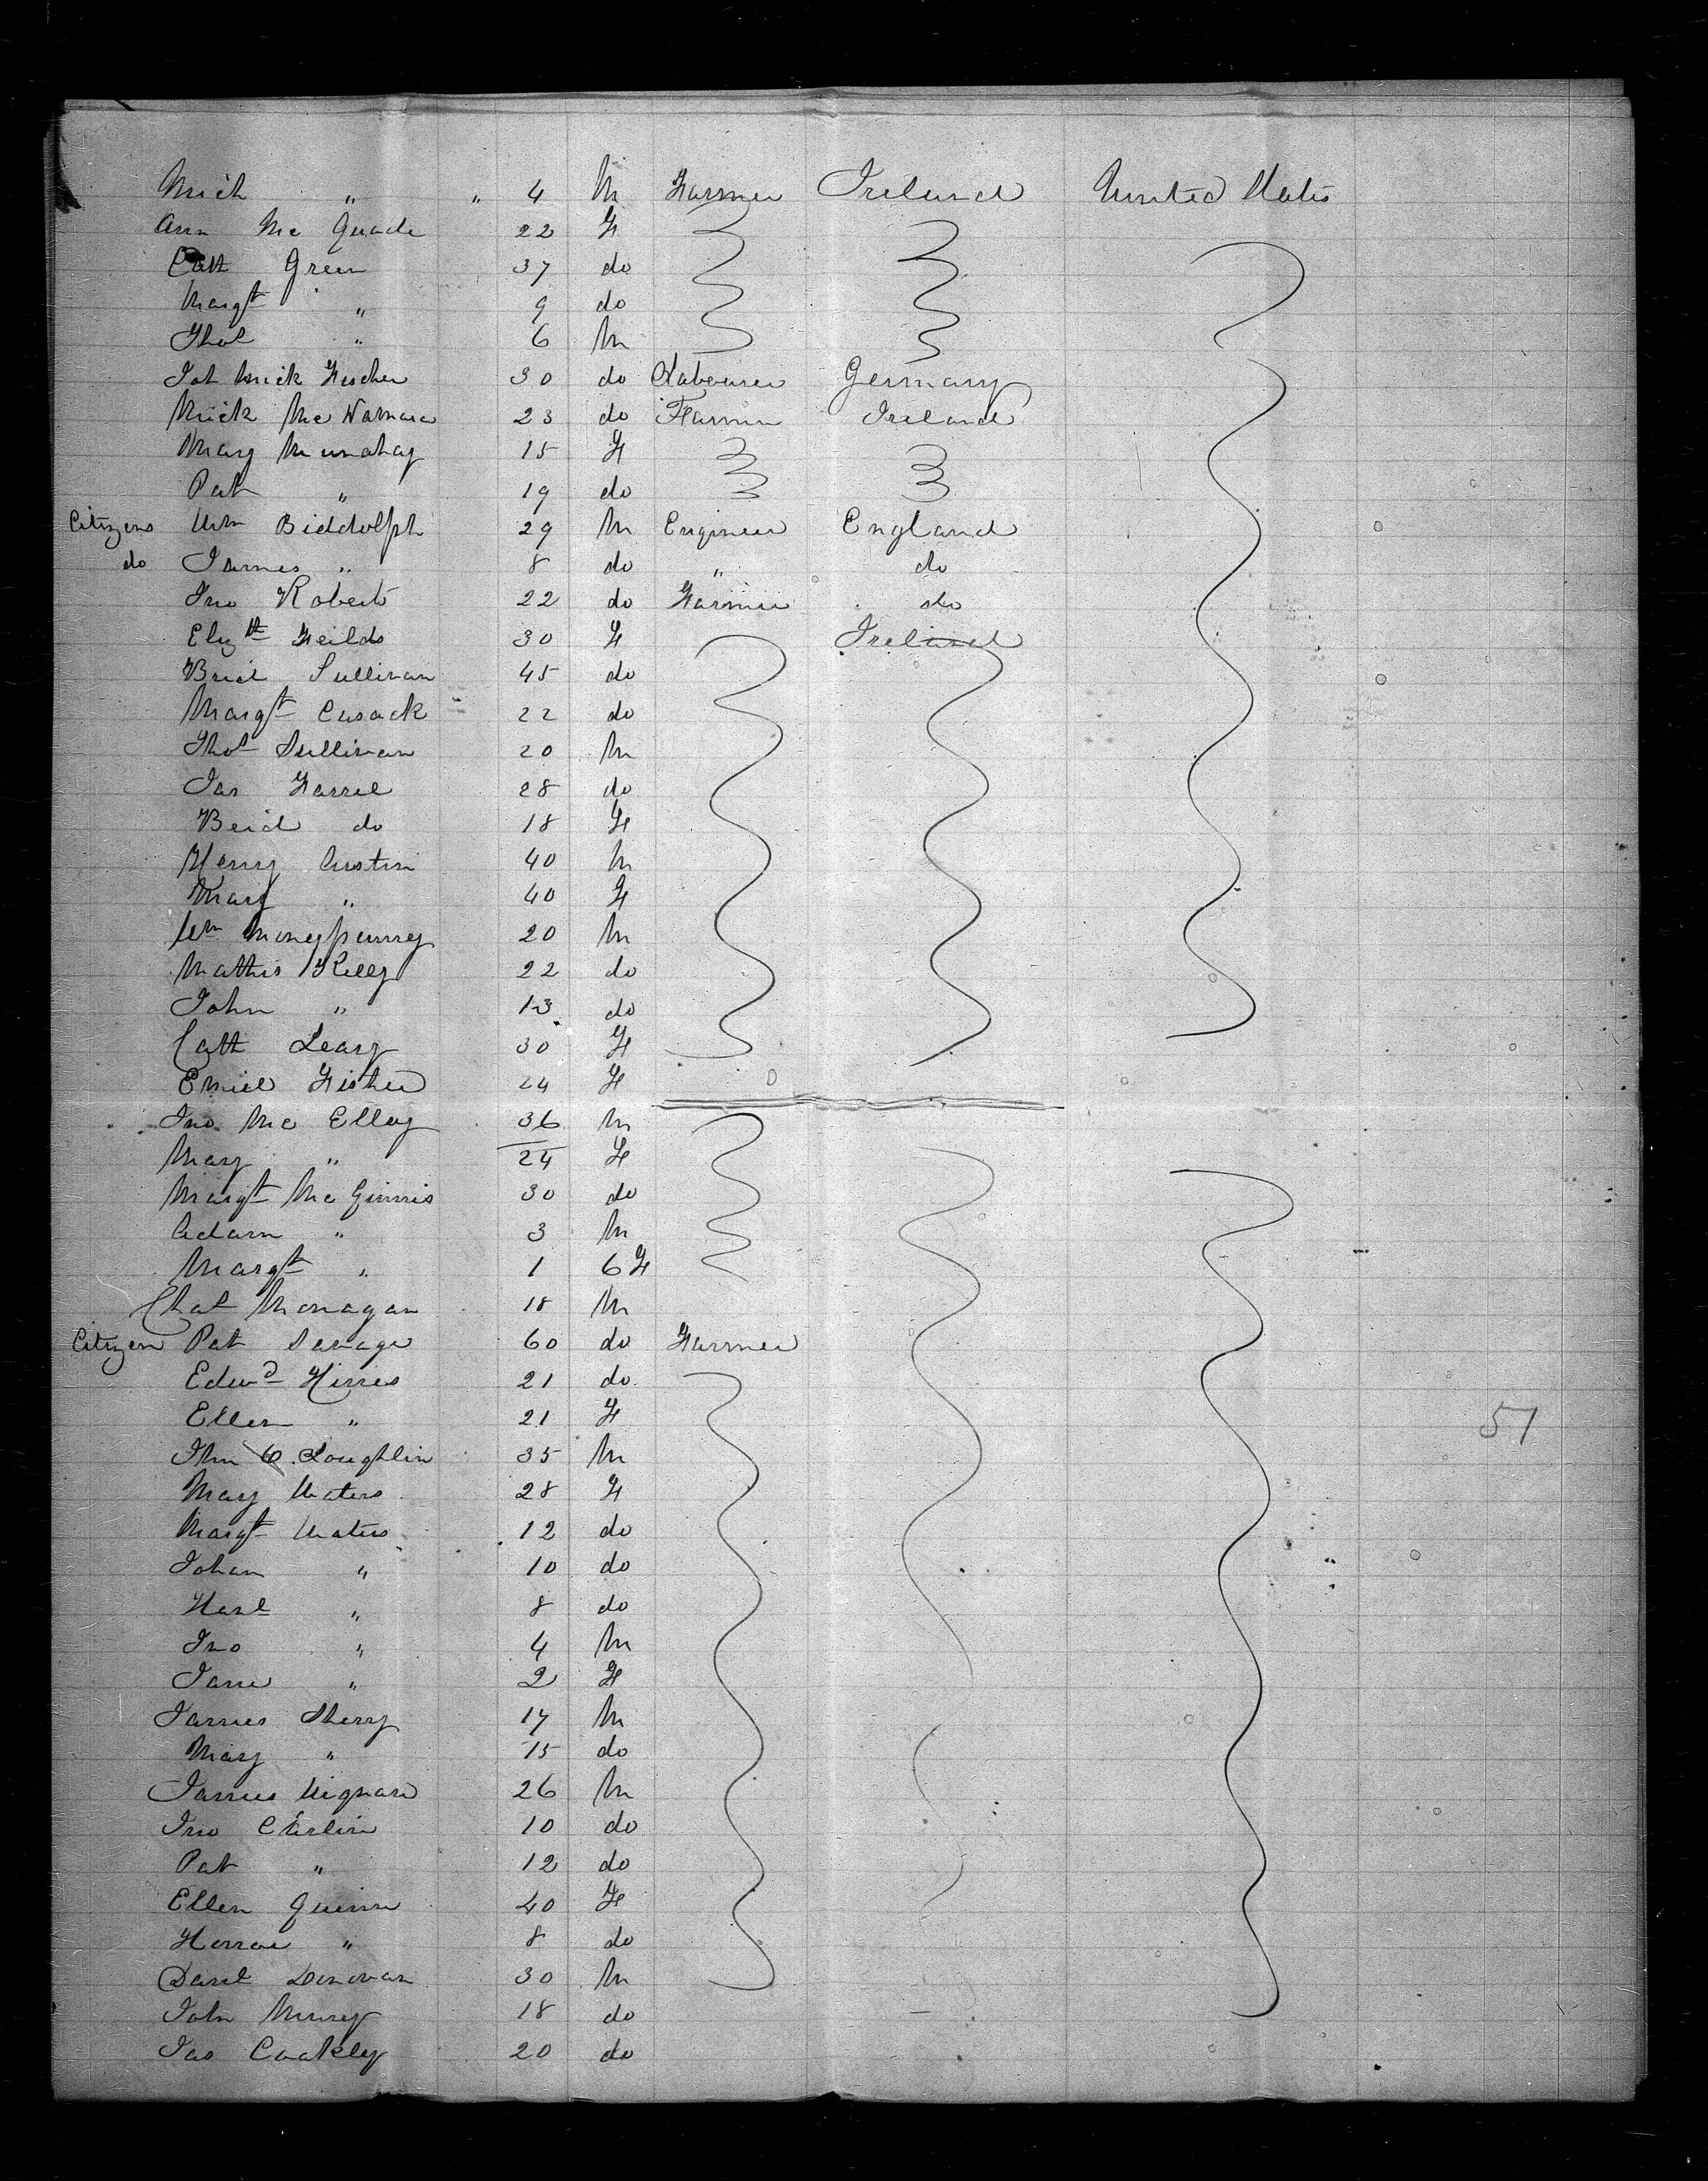 Mich " " 4 M Farmer Ireland United States
Ann Mc Quade 22 F
Cath Green 37 do
Margt " 9 do
Thos " 6 M
Joh Mick Fischer 30 do Labourer Germany
Mick Mc Namara 23 do Farmer Ireland
Mary 15 F
Pat " 19 do
Citizens Wm Biddolph 29 M Engineer England
do James " 8 do " do
Jno Roberts 22 do Farmer do
Elizth Feilds 30 F Ireland
Brid Sullivan 45 do
Margt Cusack 22 do
Thos Sullivan 20 M
Jas Farrel 28 do
Brid do 18 F
Henry Austin 40 M
Mary " 40 F
Wm Moneypenny 20 M
Mathis Kelly 22 do
John " 13 do
Cath Leary 30 F
Emiel Fisher 24 F
Jno Mc Elloy 36 M
Mary " 24 F
Margt Mc Ginnis 30 do
Adam " 3 M
Margt " 1 6 F
Chas Monagan 18 M
Citizen Pat Savage 60 do Farmer
Edwd Hines 21 do
Ellen " 21 F 51
Jhn O. Loughlin 35 M
Mary Waters 28 F
Margt Waters 12 do
Johan " 10 do
" 8 do
Jno " 4 M
Jane " 2 F
James Sherry 17 M
Mary " 15 do
James 26 M
Jno 10 do
Pat " 12 do
Ellen Quinn 40 F
" 8 do
Danl Donovan 30 M
John 18 do
Jas Coakley 20 do